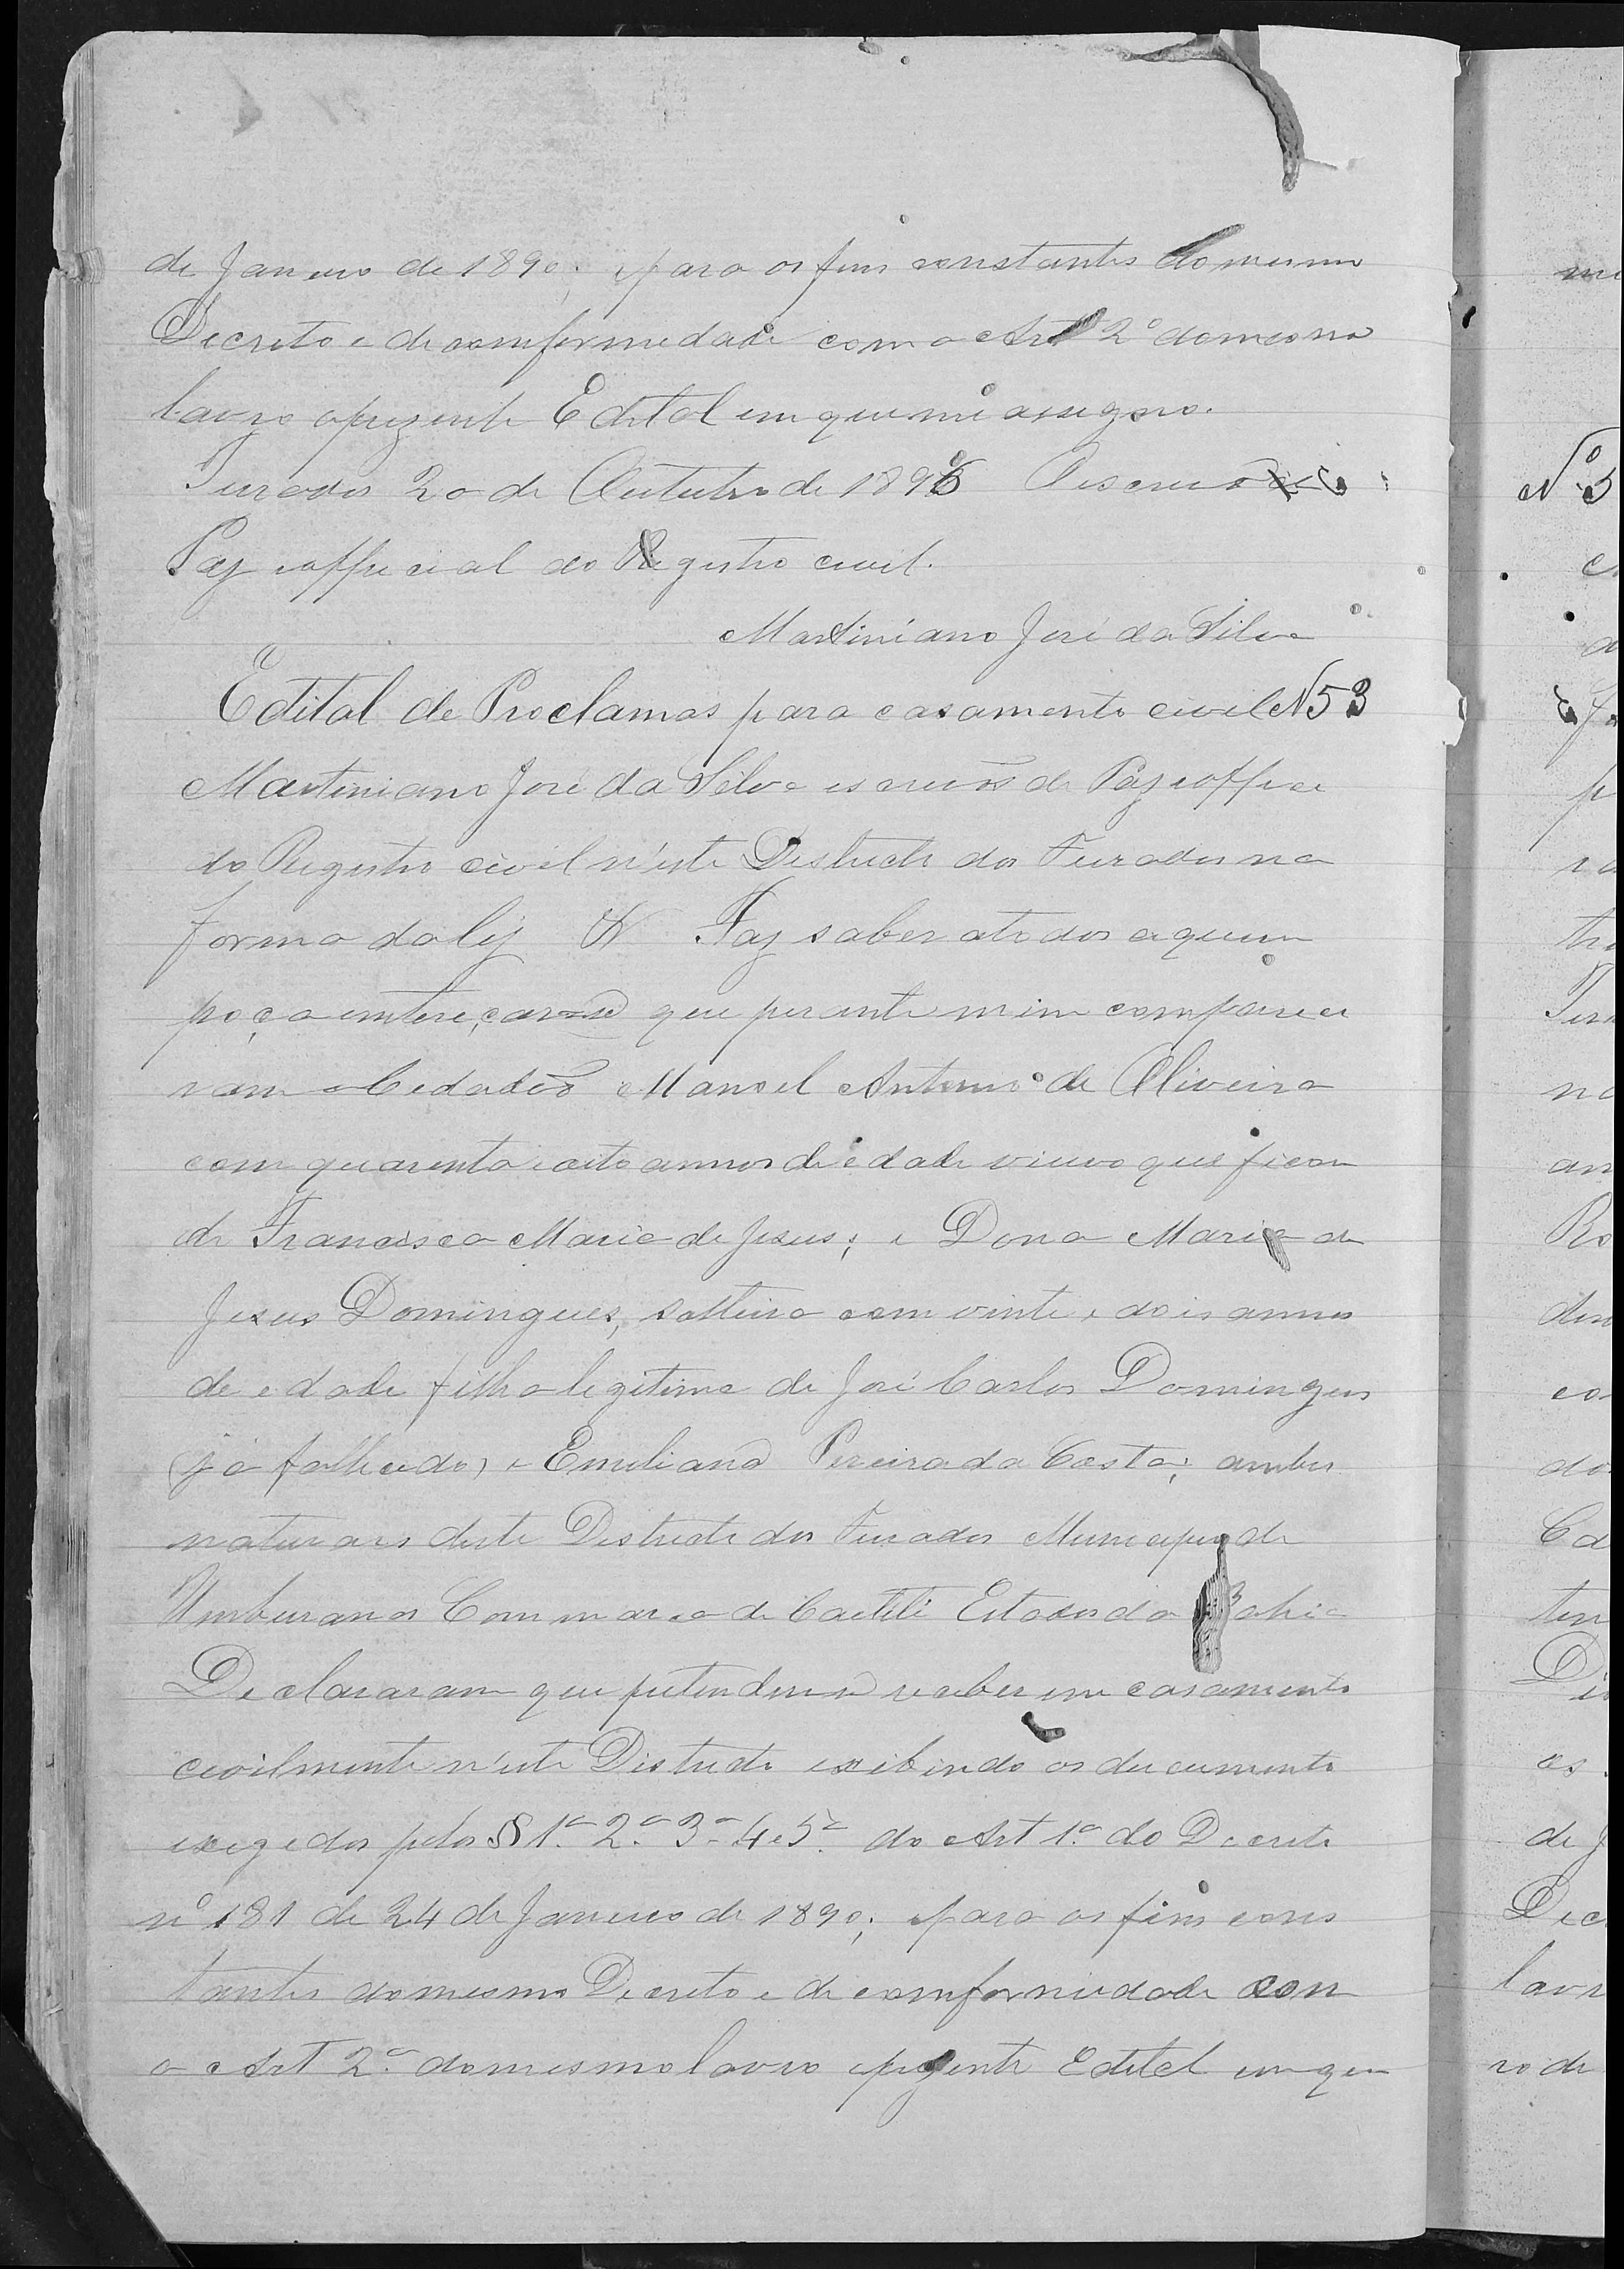 de Janeiro de 1890; e para os fins constantes do mesmo
Decreto e de comformedade com o Art 2º do mesmo
lavro o prezente Edital em que me assigno.
Furados 20 de Outubro de 1896 O escrivão de
Paz e official do Registro civil.
Martiniano José da Silva
Edital de Proclamas para casamento civil N 53
Martiniano José da Silva escrivão de Paz e offici
do Registro civil n'este Districto dos Furados na
forma da lej & Faz saber a todos a quem
poça intereçar-se que perante mim comparece
ram o Cedadão Manoel Antonio de Oliveira
com quarenta e oito annos de edade viuvo que ficou
de Francisca Maria de Jesus; e Dona Maria de
Jesus Domingues, solteira com vinte e dois annos
de edade filha legitima de José Carlos Domingues
(já falhecido) e Emiliana Pereira da Costa; ambos
naturaes deste Districto dos Furados Municipio de
Umburanas Commarca de Caetité Estado da Bahia
Declararam que pretendem se receber em casamento
civilmente n'este Districto exibindo os documento
exegedos pelos § 1º 2º 3º 4 e 5º do Art 1º do Decreto
nº 181 de 24 de Janeiro de 1890; e para os fins cons
tantes do mesmo Decreto e de comformidade com
o Art 2º do mesmo lavro o prezente Edital em que